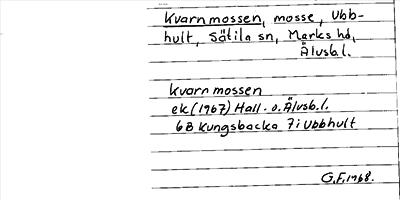 Kvarnmossen, mosse, Ubb-
hult, Sätila sn, Marks hd,
Älvsb.l.
Kvarnmossen
ek (1967) Hall. o. Älvsb.l.
6B Kungsbacka 7i Ubbhult
G.F. 1968.